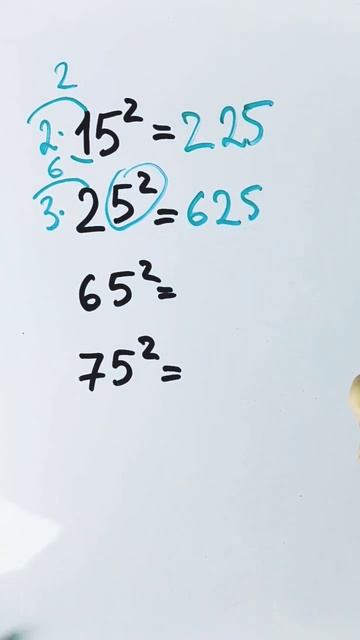 2
2· 15² = 225
6
3· 25² = 625
65² =
75² =